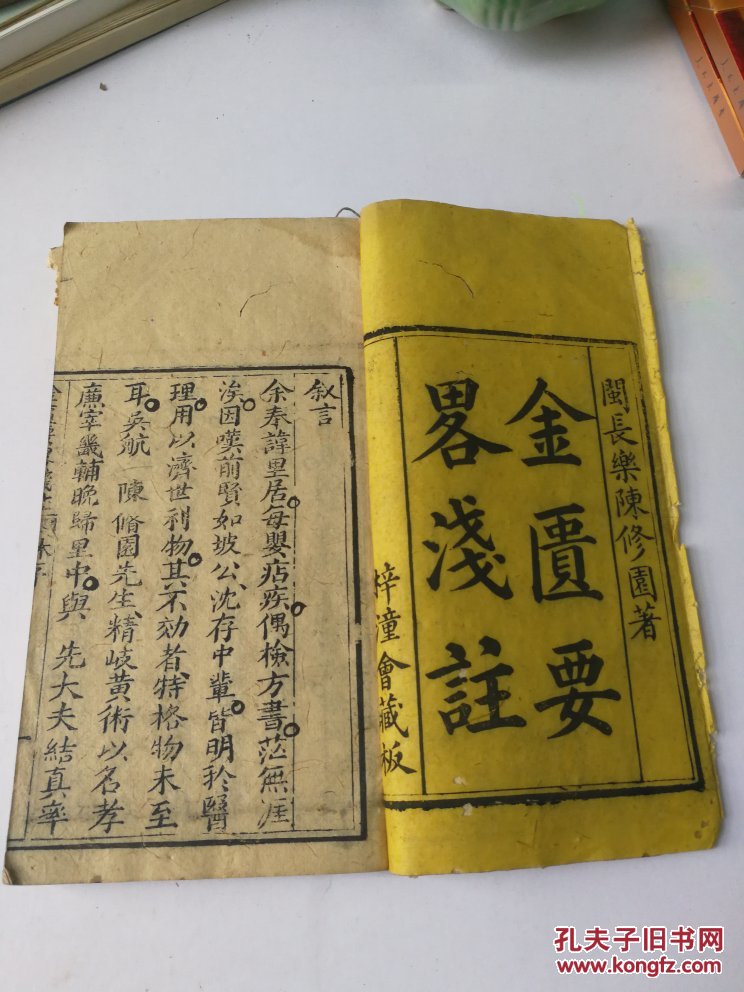 閩長樂陳修園著
金匱要
畧淺註
梓潼會藏板
叙言
余奉諱里居每嬰痁疾偶檢方書茫無涯
涘因嘆前賢如坡公沈存中輩皆明於醫
理用以濟世利物其不効者特格物未至
耳吳航 陳脩園先生精岐黃術以名孝
廉宰畿輔晚歸里中與 先大夫結真率
孔夫子旧书网
www.kongfz.com